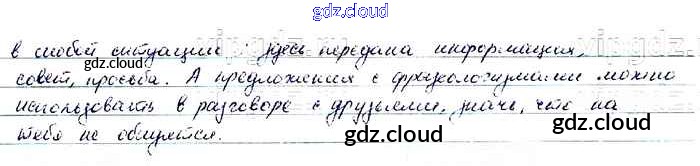 gdz.cloud
в любой ситуации : здесь передана информация,
совет, просьба. А предложения с фразеологизмами можно
использовать в разговоре с друзьями, зная, что на
тебя не обидятся.
gdz.cloud
gdz.cloud
gdz.cloud